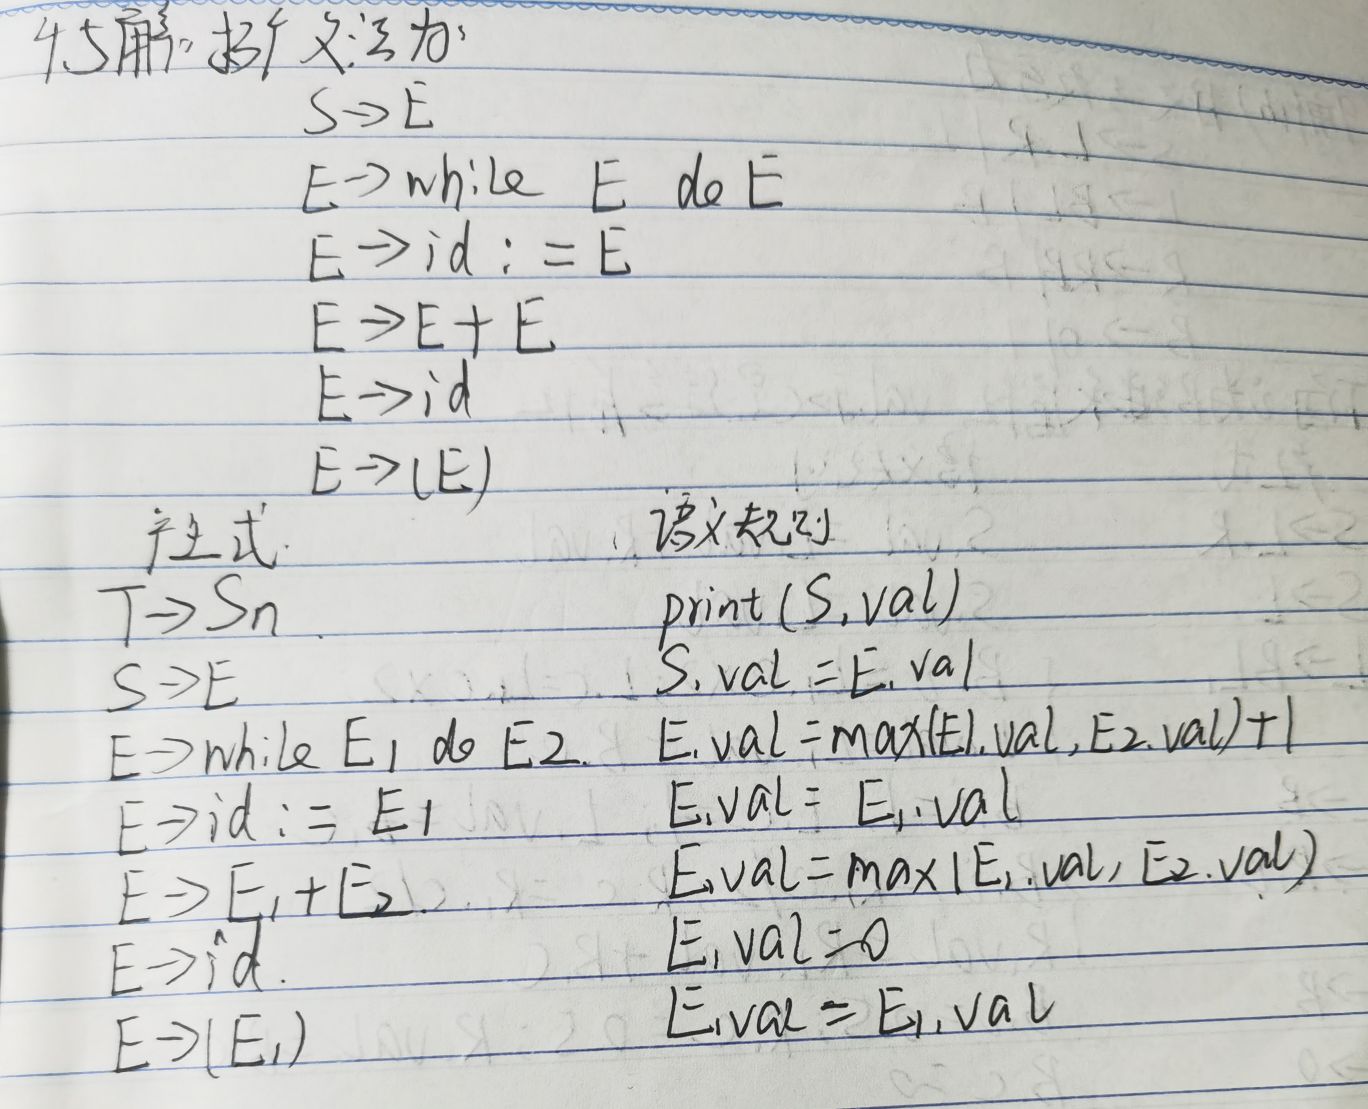 4.5解: 拓广文法为:
S→E
E→while E do E
E→id := E
E→E+E
E→id
E→(E)
产生式 语义规则
T→Sn print(S.val)
S→E S.val=E.val
E→while E1 do E2. E.val=max(E1.val, E2.val)+1
E→id := E1 E.val= E1.val
E→E1+E2. E.val=max(E1.val, E2.val)
E→id. E.val=0
E→(E1) E.val=E1.val